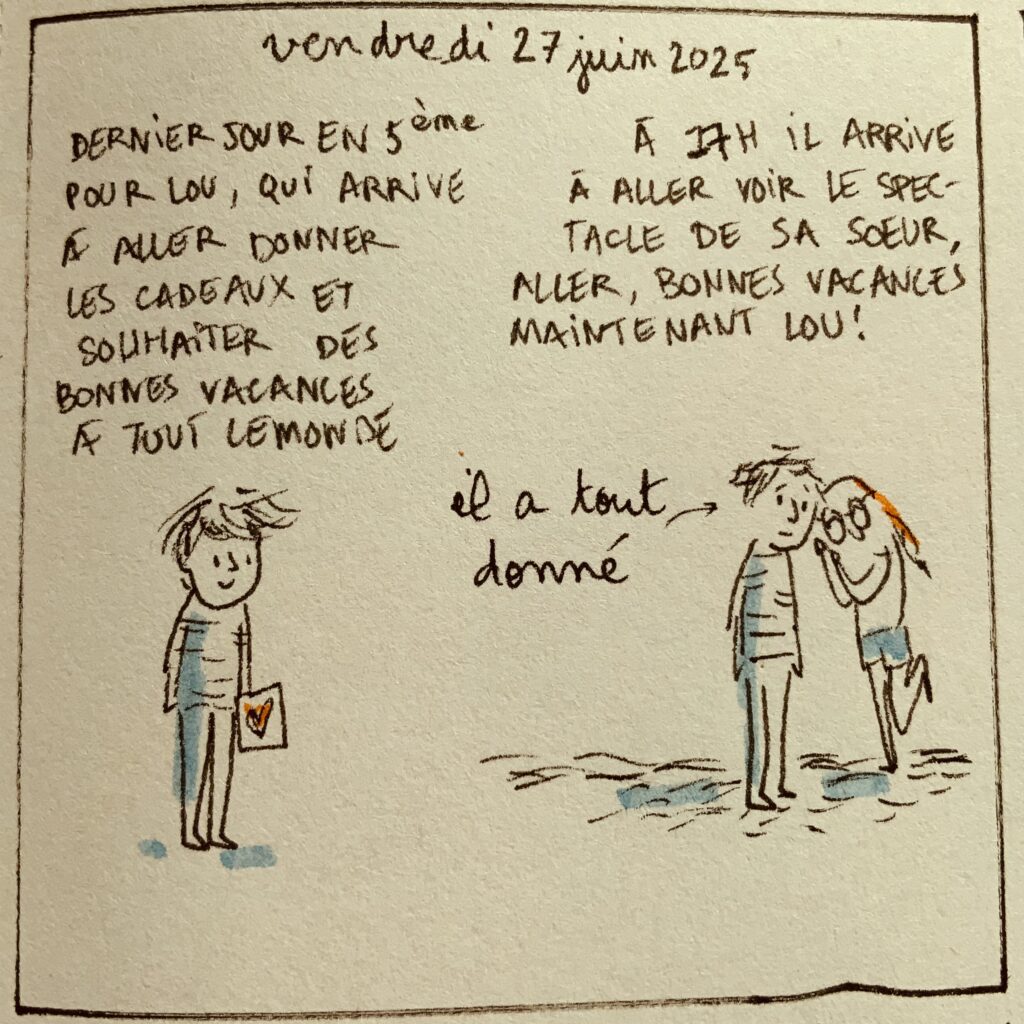 vendredi 27 juin 2025
DERNIER JOUR EN 5ème
POUR LOU, QUI ARRIVE
À ALLER DONNER
LES CADEAUX ET
SOUHAITER DES
BONNES VACANCES
À TOUT LE MONDE
À 17H IL ARRIVE
À ALLER VOIR LE SPEC-
TACLE DE SA SOEUR,
ALLER, BONNES VACANCES
MAINTENANT LOU!
il a tout
donné